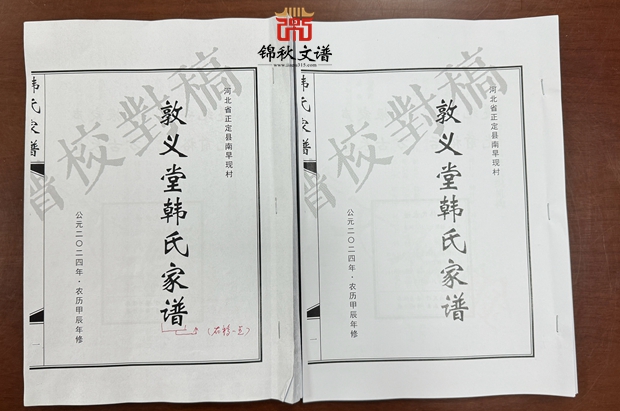 锦秋文谱
河北省正定县南早现村
敦义堂韩氏家谱
公元二〇二四年·农历甲辰年修
韩氏家谱
一
校對稿
河北省正定县南早现村
敦义堂韩氏家谱
公元二〇二四年·农历甲辰年修
韩氏家谱
一
校對稿